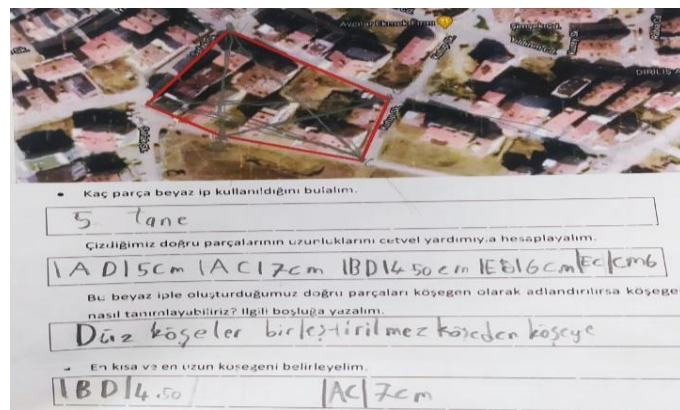 Avcılar Ekmek Fırını
DİRİLİŞ A
• Kaç parça beyaz ip kullanıldığını bulalım.
5 tane
Çizdiğimiz doğru parçalarının uzunluklarını cetvel yardımıyla hesaplayalım.
|AD|5cm |AC|7cm |BD|4.50cm |EB|6cm |EC|cm6
Bu beyaz iple oluşturduğumuz doğru parçaları köşegen olarak adlandırılırsa köşege
nasıl tanımlayabiliriz? İlgili boşluğa yazalım.
Düz köşeler birleştirilmez köşeden köşeye
En kısa ve en uzun köşegeni belirleyelim.
|BD|4.50 |AC|7cm